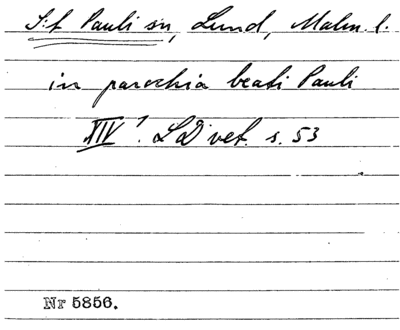 S:t Pauli sn, Lund, Malm. l.
in parochia beati Pauli
XIV¹. LD vet. s. 53
Nr 5856.